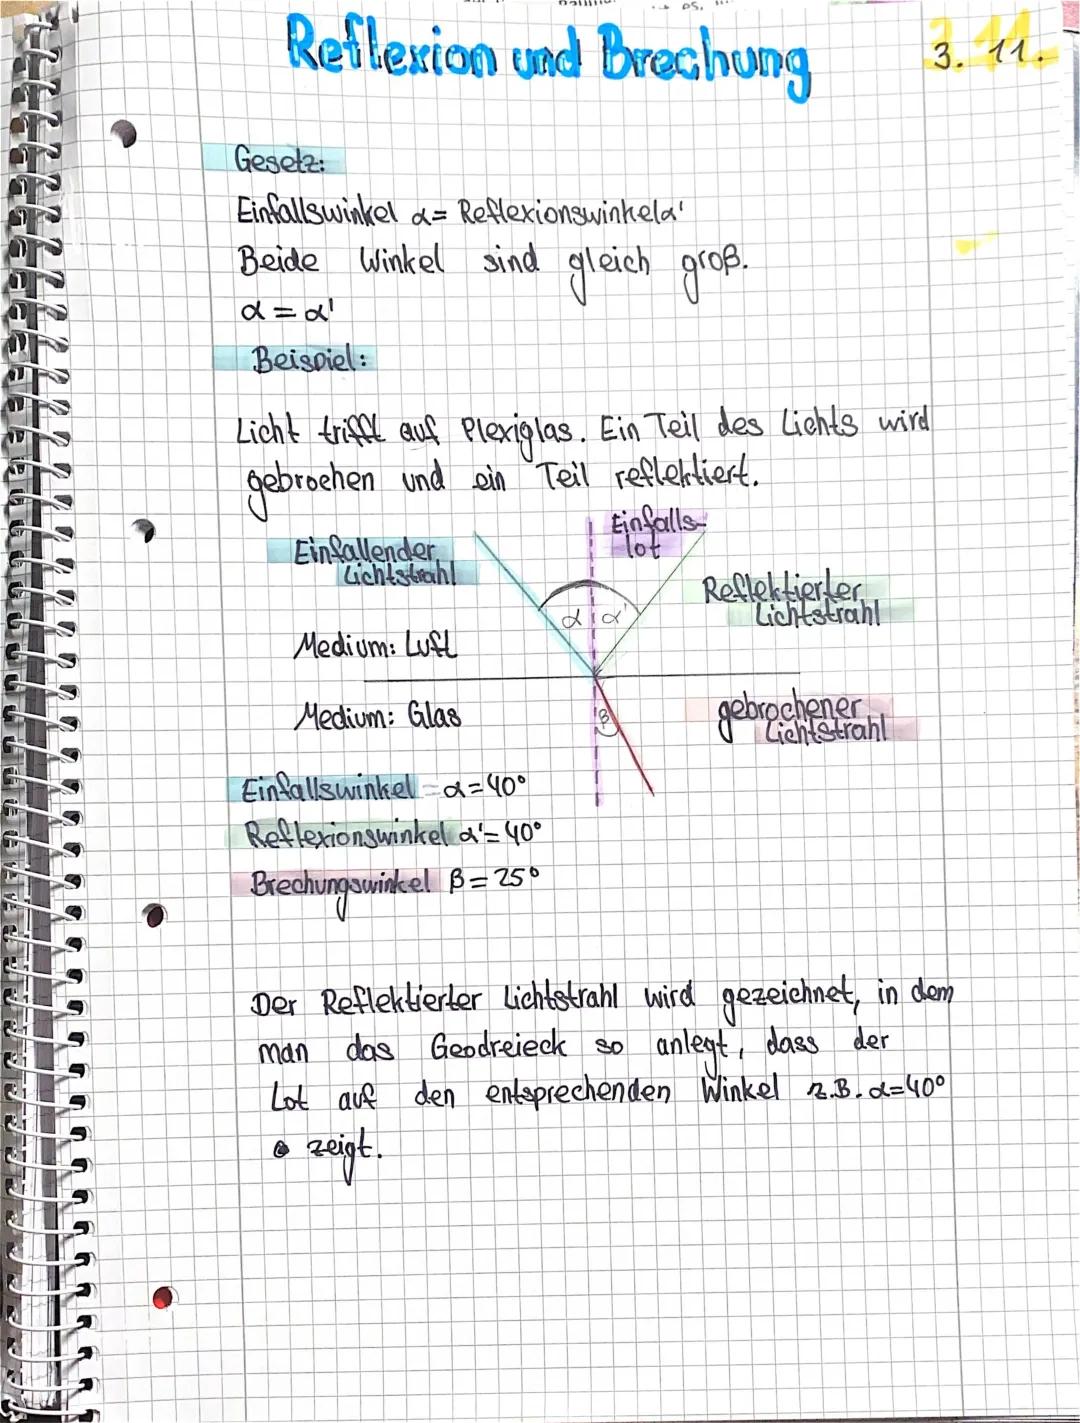 Reflexion und Brechung
3. 11.
Gesetz:
Einfallswinkel α = Reflexionswinkel α'
Beide Winkel sind gleich groß.
α = α'
Beispiel:
Licht trifft auf Plexiglas. Ein Teil des Lichts wird
gebrochen und ein Teil reflektiert.
Einfalls-
lot
Einfallender
Lichtstrahl
Reflektierter
Lichtstrahl
α α'
Medium: Luft
Medium: Glas
β
gebrochener
Lichtstrahl
Einfallswinkel = α = 40°
Reflexionswinkel α' = 40°
Brechungswinkel β = 25°
Der Reflektierter Lichtstrahl wird gezeichnet, in dem
man das Geodreieck so anlegt, dass der
Lot auf den entsprechenden Winkel z.B. α=40°
zeigt.